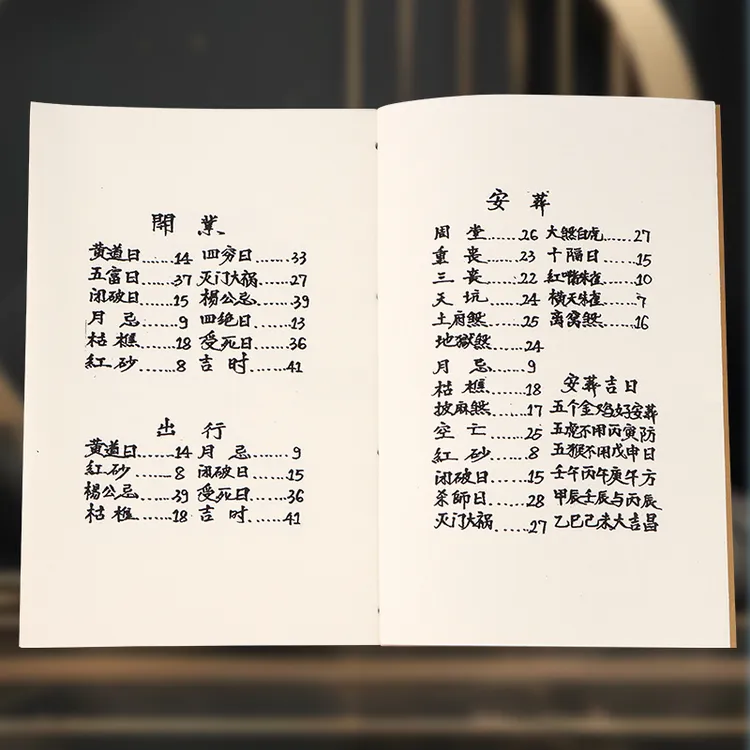 開業
黄道日......14 四穷日......33
五富日......37 灭门大祸......27
闭破日......15 楊公忌......39
月忌......9 四绝日......13
枯樵......18 受死日......36
紅砂......8 吉时......41
出行
黄道日......14 月忌......9
紅砂......8 闭破日......15
楊公忌......39 受死日......36
枯樵......18 吉时......41
安葬
周堂......26 大煞白虎......27
重丧......23 十隔日......15
三丧......22 紅嘴朱雀......10
天坑......24 横天朱雀......7
土府煞......25 离窝煞......16
地獄煞......24
月忌......9
枯樵......18 安葬吉日
披麻煞......17 五个金鸡好安葬
空亡......25 五虎不用丙寅防
紅砂......8 五猴不用戊申日
闭破日......15 壬午丙午庚午方
杀師日......28 甲辰壬辰与丙辰
灭门大祸......27 乙巳己未大吉昌